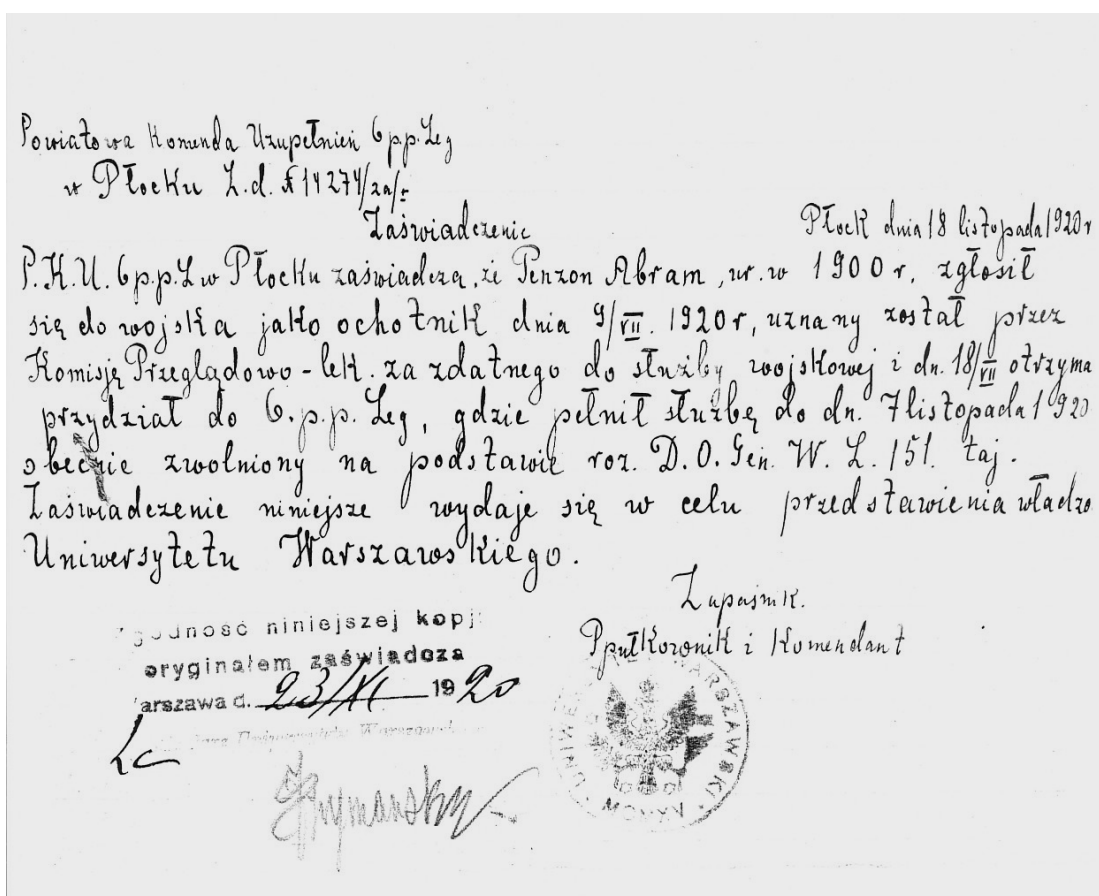 Powiatowa Komenda Uzupełnień 6 p.p. Leg
w Płocku L.d. № 14274/za/r
Zaświadczenie
Płock dnia 18 listopada 1920 r
P.K.U. 6 p.p.L w Płocku zaświadcza, że Penzon Abram, ur. w 1900 r, zgłosił
się do wojska jako ochotnik dnia 9/VII. 1920 r, uznany został przez
Komisję Przeglądowo-lek. za zdatnego do służby wojskowej i dn. 18/VII otrzyma
przydział do 6. p.p. Leg, gdzie pełnił służbę do dn. 7 listopada 1920
obecnie zwolniony na podstawie roz. D.O. Gen. W. L. 151. taj.
Zaświadczenie niniejsze wydaje się w celu przedstawienia władzo
Uniwersytetu Warszawskiego.
Zupaśnik.
Ppułkownik i Komendant
Zgodność niniejszej kopj
oryginałem zaświadcza
arszawa d. 23/XI 1920
UNIWERSYTET WARSZAWSKI